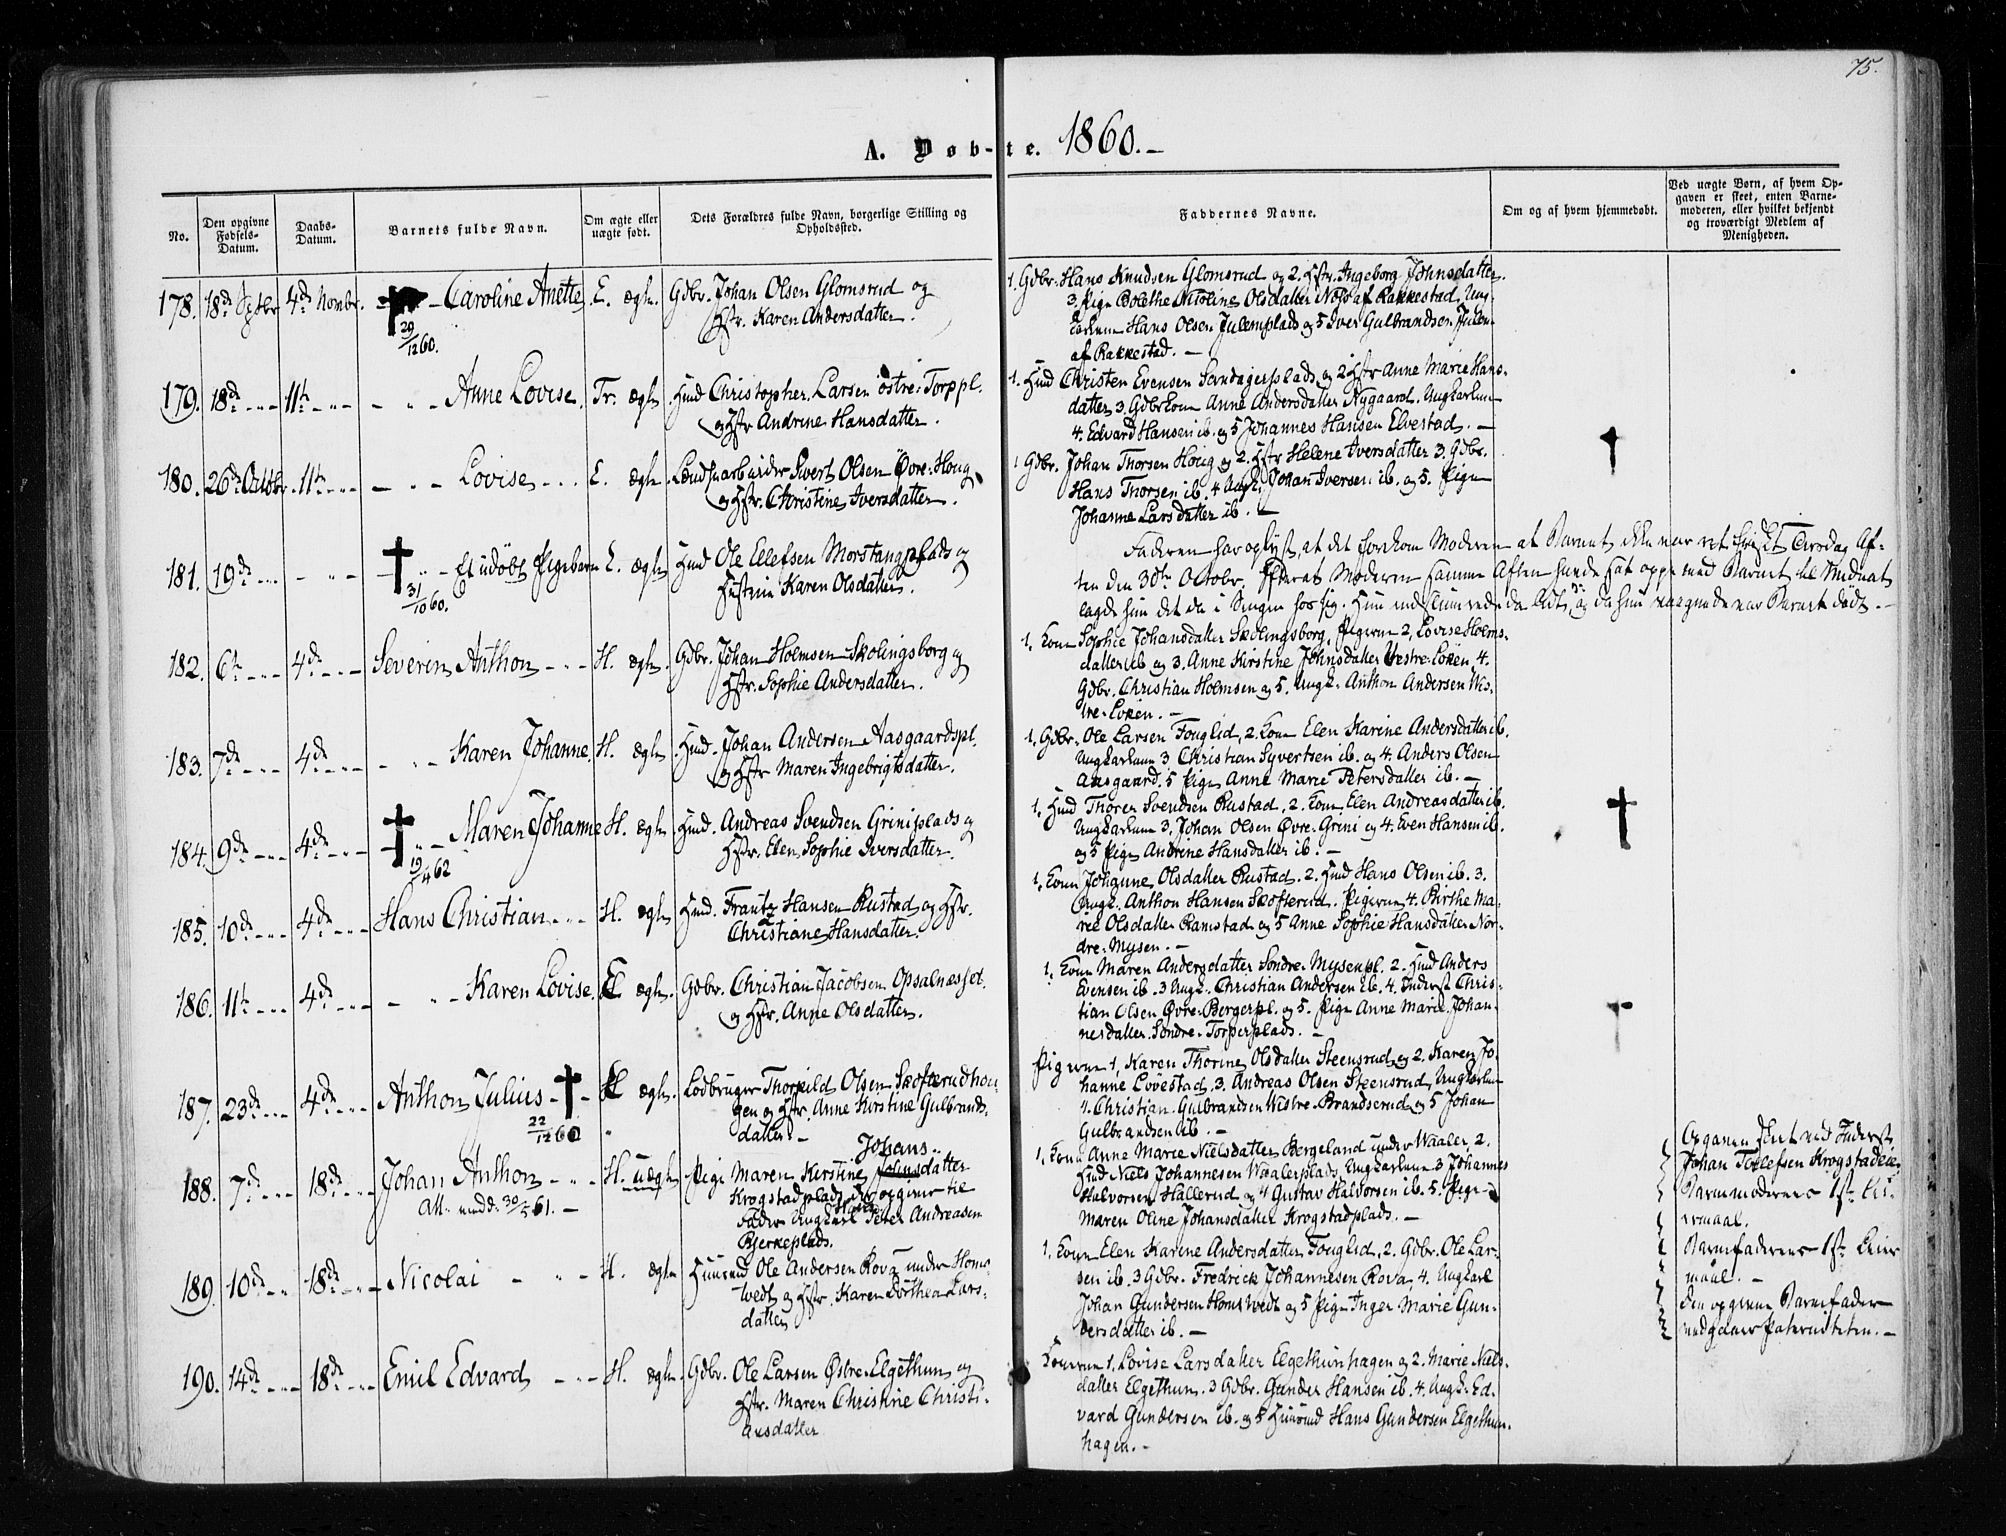 75.
A. Døb-te. 1860.-
No.
Den opgivne Fødsels-Datum.
Daabs-Datum.
Barnets fulde Navn.
Om ægte eller uægte født.
Dets Forældres fulde Navn, borgerlige Stilling og Opholdssted.
Faddernes Navne.
Om og af hvem hjemmedøbt.
Ved uægte Børn, af hvem Opgaven er skeet, enten Barnemoderen, eller hvilket bekjendt og troværdigt Medlem af Menigheden.
178. 18de Septbr 4de Novbr. Caroline Anette E. ægte. Gdbr. Johan Olsen Glomsrud og
Hstr. Karen Andersdatter.
29/12 60.
1. Gdbr. Hans Knudsen Glomsrud og 2. Hstr. Ingeborg Johnsdatter.
3. Pige Bolethe Nicoline Olsdatter Næss af Rakkestad, Ung-
karlene Hans Olsen Julemplads og 5 Iver Gulbrandsen Julen
af Rakkestad. -
179. 18de 11te Anne Lovise Tr. ægte Hmd Christopher Larsen østre-Torppl.
og Hstr Andrine Hansdatter.
1. Hmd Christen Evensen Sandagersplads og 2 Hstr Anne Marie Hans-
datter 3. Gdbrkone Anne Andersdatter Rygaard. Ungkarlene
4. Edvard Hansen ib. og 5 Johannes Hansen Elvestad. -
180. 26de Octbr. 11te Lovise E. ægte. Landsarbeider Sivert Olsen Øvre-Houg
og Hstr. Christine Iversdatter.
1 Gdbr. Johan Thorsen Houg og 2. Hstr Helene Iversdatter 3. Gdbr.
Hans Thorsen ib. 4 Ungk. Johan Iversen ib. og 5. Pige
Johanne Larsdatter ib. -
181. 19de Et udøbt Pigebarn E. ægte Hmd Ole Ellefsen Morstangplads og
Hustrue Karen Olsdatter.
31/10 60.
Faderen har oplyst, at det forekom Moderen at Barnet ikke var ret friskt Tirsdag Af-
ten den 30te Octobr. Efterat Moderen samme Aften havde sat oppe med Barnet til Midnat
lagde hun det da i Sengen hos sig. Hun indslumrede da lidt, og da hun vaagnede var Barnet dødt. -
182. 6te 4de Severin Anthon H. ægte. Gdbr. Johan Holmsen Skolingsborg og
Hstr. Sophie Andersdatter.
1. Kone Sophie Johansdatter Skolingsborg, Pigerne 2, Lovise Holms-
datter ib og 3. Anne Kirstine Johnsdatter Vestre-Løken, 4.
Gdbr. Christian Holmsen og 5. Ungk. Anthon Andersen Ves-
tre-Løken. -
183. 7de 4de Karen Johanne. H. ægte Hmd. Johan Andersen Aasgaardspl.
og Hstr Maren Ingebrigtsdatter.
1. Gdbr. Ole Larsen Fouglid, 2. Kone Elen Karine Andersdatter ib.
Ungkarlene 3 Christian Syvertsen ib. og 4. Anders Olsen
Aasgaard. 5 Pige Anne Marie Petersdatter ib. -
184. 9de 4de Maren Johanne H. ægte Hmd. Andreas Svendsen Griniplads og
Hstr. Elen Sophie Iversdatter.
19/4 62
1. Hmd Thorer Svendsen Rustad, 2. Kone Elen Andreasdatter ib.
Ungkarlene 3. Johan Olsen Øvre-Grini og 4. Even Hansen ib.
og 5 Pige Andrine Hansdatter ib. -
185. 10de 4de Hans Christian H. ægte Hmd. Frantz Hansen Rustad og Hstr.
Christiane Hansdatter.
1. Kone Johanne Olsdatter Rustad. 2. Hmd Hans Olsen ib. 3.
Ungk. Anthon Hansen Skofterud. Pigerne 4. Birthe Ma-
rie Olsdatter Ramstad og 5 Anne Sophie Hansdatter Nor-
dre-Mysen. -
186. 11te 4de Karen Lovise. E ægte. Gdbr. Christian Jacobsen Opsalnæsset.
og Hstr. Anne Olsdatter.
1. Kone Maren Andersdatter Søndre-Mysenpl. 2. Hmd Anders
Evensen ib. 3 Ungk. Christian Andersen ib. 4. Inderst Chris-
tian Olsen Øvre-Bergerpl. og 5. Pige Anne Marie Johan-
nesdatter Søndre-Torperplads. -
187. 23de 4de Anthon Julius E ægte. Lodbruger Thorkild Olsen Skofterudhou-
gen og Hstr. Anne Kirstine Gulbrands-
datter. -
22/12 60
Pigerne 1. Karen Thorine Olsdatter Steensrud og 2. Karen Jo-
hanne Lövestad, 3. Andreas Olsen Steensrud, Ungkarlene
4. Christian Gulbrandsen Vestre-Brandserud og 5 Johan
Gulbrandsen ib. -
188. 7de 18de Johan Anthon H. uægte Pige Maren Kirstine Johans- Johnsdatter
Krogstadplads, der opgiver til
Fader Ungkarl Hans Peter Andreasen
Bjerkeplads.
Att. medd. 30/5 61. -
1. Kone Anne Marie Nielsdatter Bergeland under Waaler 2.
Hmd Niels Johannesen Waalerplads, Ungkarlene 3 Johannes
Halvorsen Hallerud og 4 Gustav Halvorsen ib. 5. Pige
Maren Oline Johansdatter Krogstadplads. -
Opgaven skeet ved Inderst
Johan Tollefsen Krogstadeie.
Barnemoderens 1ste Lei-
ermaal.
Barnefaderens 1ste Leier
maal. -
Den opgivne Barnefader
vedgaaer Paterniteten. -
189. 10de 18de Nicolai H. ægte Huusmd Ole Andersen Rova under Homs-
tvedt og Hstr. Karen Dorthea Lars-
datter
1. Kone Elen Karine Andersdatter Fouglid, 2. Gdbr. Ole Lar-
sen ib. 3 Gdbr. Fredrick Johannesen Rova, 4. Ungkarl
Johan Gundersen Homstvedt og 5 Pige Inger Marie Gun-
dersdatter ib. -
190. 14de 18de Emil Edvard H. ægte. Gdbr. Ole Larsen Østre-Elgethun og
Hstr. Maren Christine Christi-
ansdatter
Konerne 1. Lovise Larsdatter Elgethunhagen og 2. Marie Niels-
datter Elgethun. 3 Gdbr. Gunder Hansen ib. 4. Ungk. Ed-
vard Gundersen ib. og 5 Huusmd Hans Gundersen Elgethun-
hagen. -